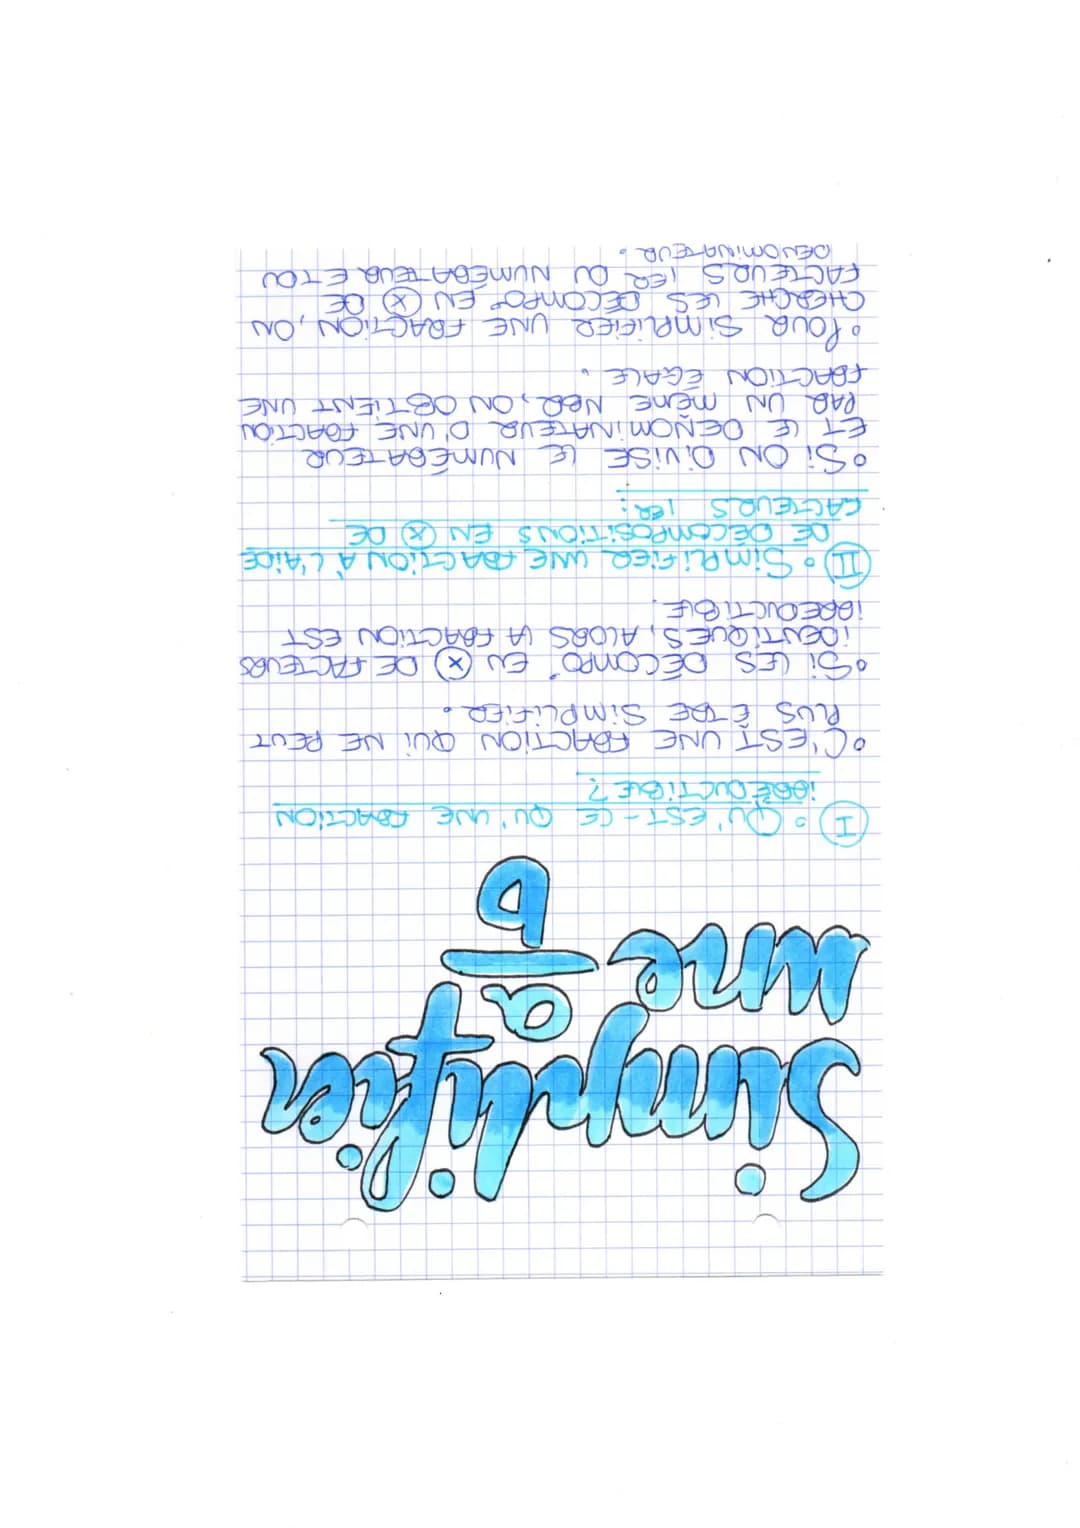 Simplifier
une a
b
I • QU'EST-CE QU'UNE FRACTION
iRRÉDUCTIBLE ?
• C'EST UNE FRACTION QUi NE PEUT
PLUS ÊTRE SiMPLiFiER.
• Si LES DÉCOMPO° EN ⓧ DE FACTEURS
iDENTiQUES, ALORS LA FRACTiON EST
iRREDUCTiBLE.
II • SiMPLiFiER UNE FRACTiON À L'AiDE
DE DÉCOMPOSiTiONS EN ⓧ DE
FACTEURS 1ER :
• Si ON DiViSE LE NUMÉRATEUR
ET LE DENOMiNATEUR D'UNE FRACTiON
PAR UN MÊME NBR, ON OBTiENT UNE
FRACTiON ÉGALE.
• POUR SiMPLiFiER UNE FRACTiON, ON
CHERCHE LES DÉCOMPO° EN ⓧ DE
FACTEURS 1ER DU NUMÉRATEUR ET DU
DENOMiNATEUR.